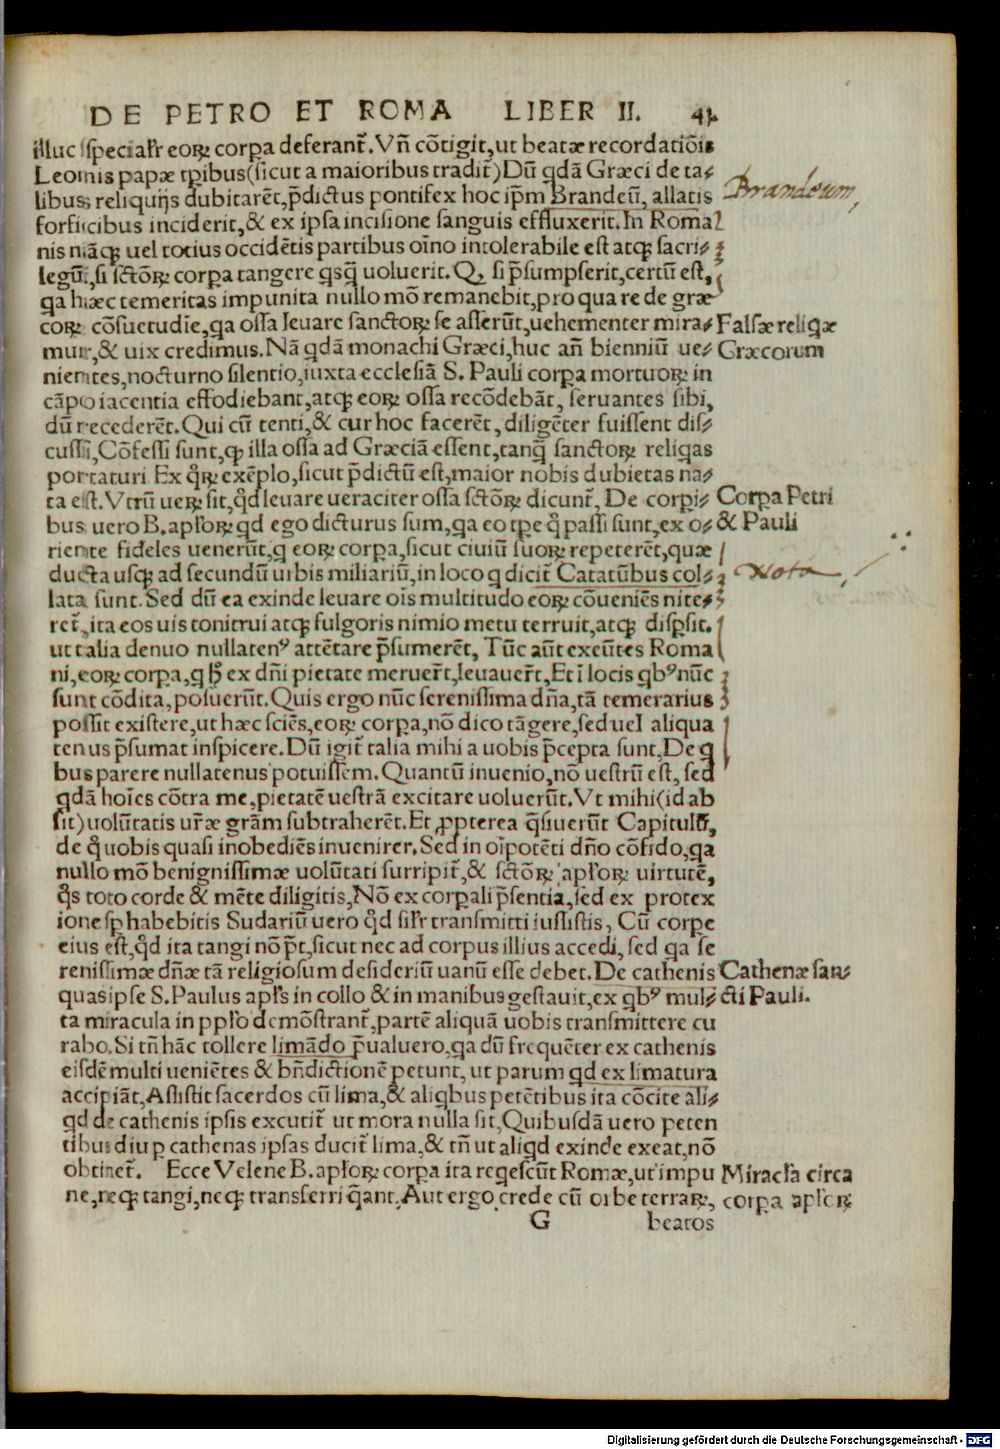 DE PETRO ET ROMA LIBER II. 41
illuc specialr̃ eoꝝ corpa deferant᷑. Vñ cõtigit, ut beatæ recordatiõis
Leonis papæ tꝑibus (sicut a maioribus tradit᷑) Dũ qdã Græci de ta⸗
libus reliquijs dubitarẽt, p̃dictus pontifex hoc ip̃m Brandeũ, allatis
Brandeum,
forficibus inciderit, & ex ipsa incisione sanguis effluxerit. In Roma
nis nãqꝫ uel totius occidẽtis partibus oĩno intolerabile est atqꝫ sacri⸗
legũ, si sctõꝝ corpa tangere qsq̃ uoluerit. Q, si p̃sumpserit, certũ est,
qa hæc temeritas impunita nullo mõ remanebit, pro qua re de græ
coꝝ cõsuetudĩe, qa ossa leuare sanctoꝝ se asserũt, uehementer mira⸗
Falsæ reliqæ
mur, & uix credimus. Nã qdã monachi Græci, huc añ bienniũ ue⸗
Græcorum
nientes, nocturno silentio, iuxta ecclesiã S. Pauli corpa mortuoꝝ in
cãpo iacentia effodiebant, atqꝫ eoꝝ ossa recõdebãt, seruantes sibi,
dũ recederẽt. Qui cũ tenti, & cur hoc facerẽt, diligẽter fuissent dis⸗
cussi, Cõfessi sunt, ꝙ illa ossa ad Græciã essent, tanq̃ sanctoꝝ reliqas
portaturi Ex qͦꝝ exẽplo, sicut p̃dictũ est, maior nobis dubietas na⸗
ta est. Vtrũ ueꝝ sit, qͦd leuare ueraciter ossa sctõꝝ dicunt᷑, De corpi⸗
Corpa Petri
bus uero B. apl̃oꝝ qd ego dicturus sum, qa eo tꝑe qͦ passi sunt, ex o⸗
& Pauli
riente fideles uenerũt, q eoꝝ corpa, sicut ciuiũ suoꝝ repeterẽt, quæ
ducta usqꝫ ad secundũ urbis miliariũ, in loco q dicit᷑ Catatũbus col⸗
Nota
lata sunt. Sed dũ ea exinde leuare oĩs multitudo eoꝝ cõueniẽs nite⸗
ret᷑, ita eos uis tonitrui atqꝫ fulgoris nimio metu terruit, atqꝫ disp̃sit.
ut talia denuo nullatenꝰ attẽtare p̃sumerẽt, Tũc aũt exeũtes Roma
ni, eoꝝ corpa, q hͦ ex dñi pietate meruer̃t, leuauer̃t, Et ĩ locis qbꝰ nũc
sunt cõdita, posuerũt. Quis ergo nũc serenissima dña, tã temerarius
possit existere, ut hæc sciẽs, eoꝝ corpa, nõ dico tãgere, sed uel aliqua
tenus p̃sumat inspicere. Dũ igit᷑ talia mihi a uobis p̃cepta sunt, De q
bus parere nullatenus potuissem. Quantũ inuenio, nõ uestrũ est, sed
qdã hoĩes cõtra me, pietatẽ uestrã excitare uoluerũt. Vt mihi (id ab
sit) uolũtatis ur̃æ grãm subtraherẽt. Et ꝓpterea q̃siuerũt Capitulũ,
de qͦ uobis quasi inobediẽs inuenirer. Sed in oĩpotẽti dño cõfido, qa
nullo mõ benignissimæ uolũtati surripit᷑, & sctõꝝ apl̃oꝝ uirtutẽ,
qͦs toto corde & mẽte diligitis, Nõ ex corpali p̃sentia, sed ex protex
ione sp habebitis Sudariũ uero qͦd sil̃r transmitti iussistis, Cũ corpe
eius est, qͦd ita tangi nõ p̃t, sicut nec ad corpus illius accedi, sed qa se
renissimæ dñæ tã religiosum desideriũ uanũ esse debet. De cathenis
Cathenæ san⸗
quas ipse S. Paulus apl̃s in collo & in manibus gestauit, ex qbꝰ mul⸗
cti Pauli.
ta miracula in ppl̃o demõstrant᷑, partẽ aliquã uobis transmittere cu
rabo. Si tñ hãc tollere limãdo p̃ualuero, qa dũ frequẽter ex cathenis
eisdẽ multi ueniẽtes & bñdictionẽ petunt, ut parum qd ex limatura
accipiãt, Assistit sacerdos cũ lima, & aliqbus petẽtibus ita cõcite ali⸗
qd de cathenis ipsis excutit᷑ ut mora nulla sit, Quibusdã uero peten
tibus diu ꝑ cathenas ipsas ducit᷑ lima, & tñ ut aliqd exinde exeat, nõ
obtinet᷑. Ecce Velene B. apl̃oꝝ corpa ita reqescũt Romæ, ut impu
Miracl̃a circa
ne, neqꝫ tangi, neqꝫ transferri q̃ant. Aut ergo crede cũ orbe terraꝝ,
corpa apl̃oꝝ
G beatos
Digitalisierung gefördert durch die Deutsche Forschungsgemeinschaft - DFG